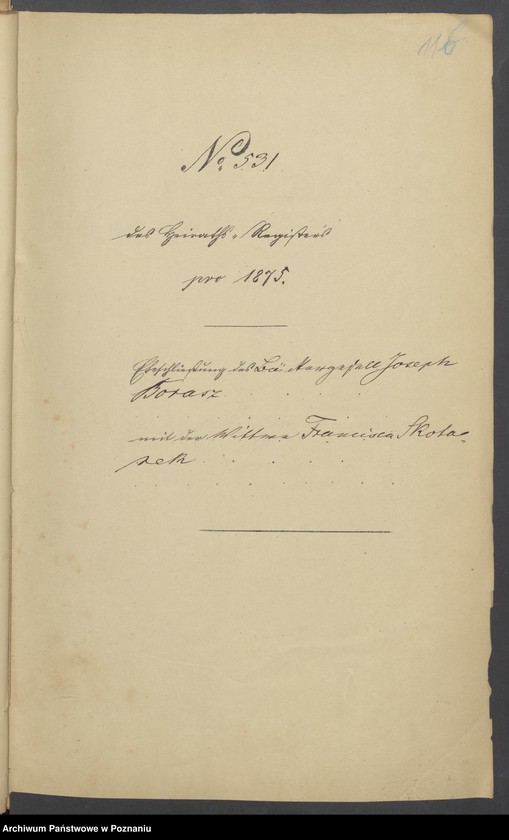 116
No 531
des Heiraths-Registers
pro 1875.
Eheschließung des Bäckergesell Joseph
Borasz
mit der Wittwe Francisca Skota-
rek
Archiwum Państwowe w Poznaniu